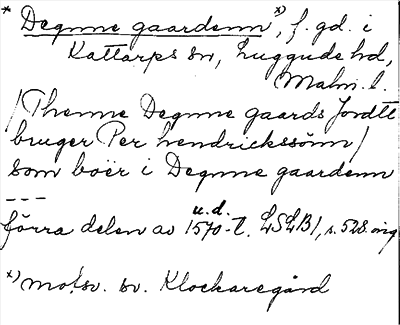 * Degnne gaardenn x), f. gd. i
Kattarps sn, Luggude hd,
Malm. l.
/Thenne Degnne gaards Jordtt
bruger Per hendrickssönn/
som boër i Degnne gaardenn
---
u.d.
förra delen av 1570-t. LSLB1, s. 528
x) motsv. sv. Klockaregård